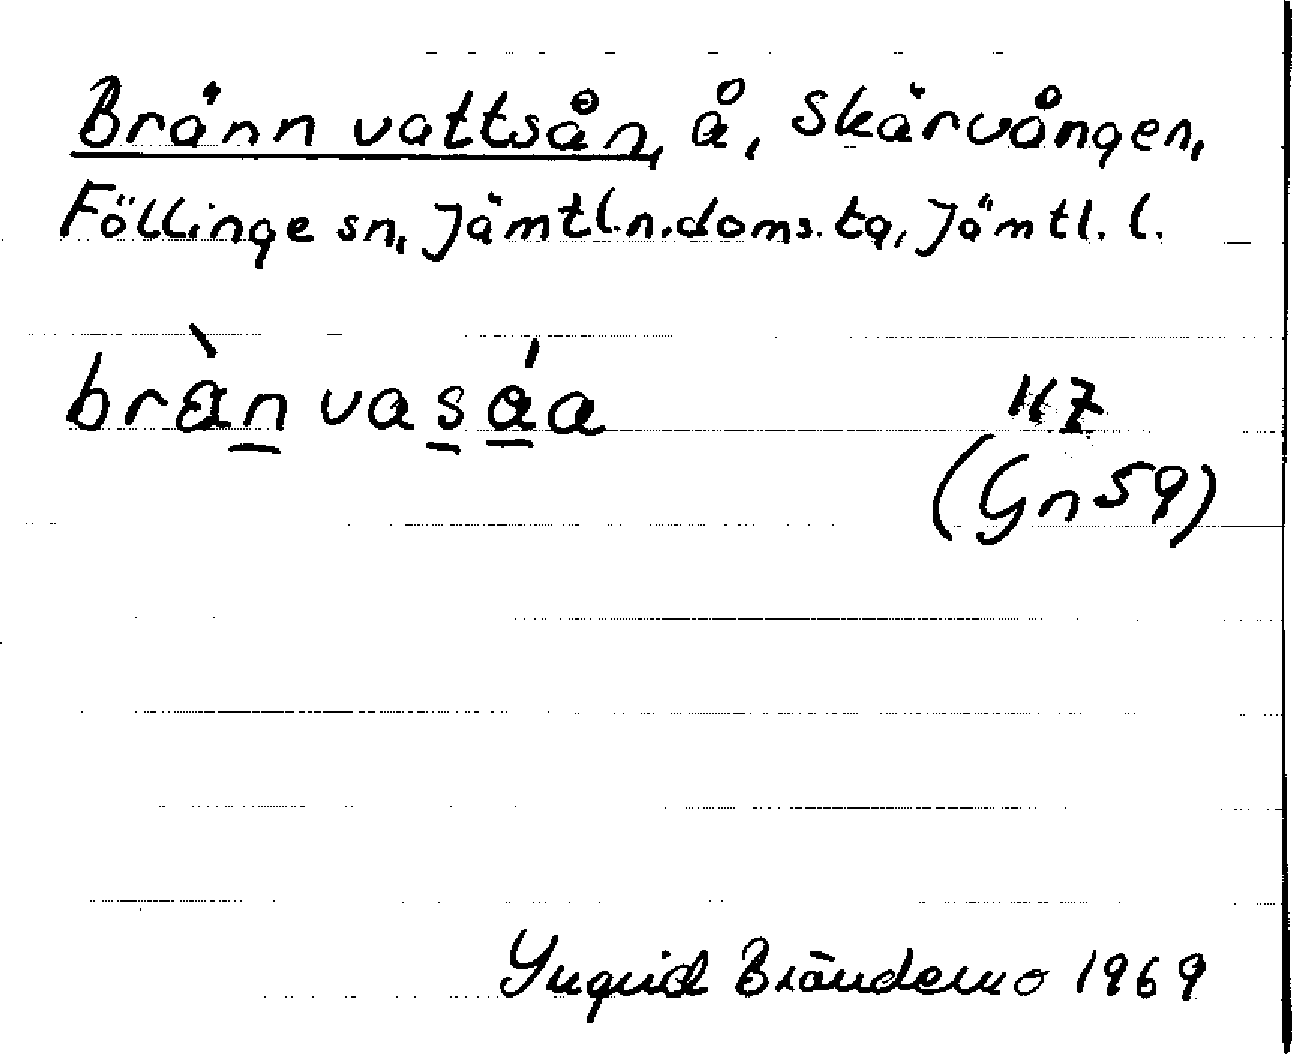 Brännvattsån, å, Skärvången,
Föllinge sn, Jämtl.n.doms.tg, Jämtl. l.
brànvasáa
117
(Gn 59)
Yngrid Brändemo 1969